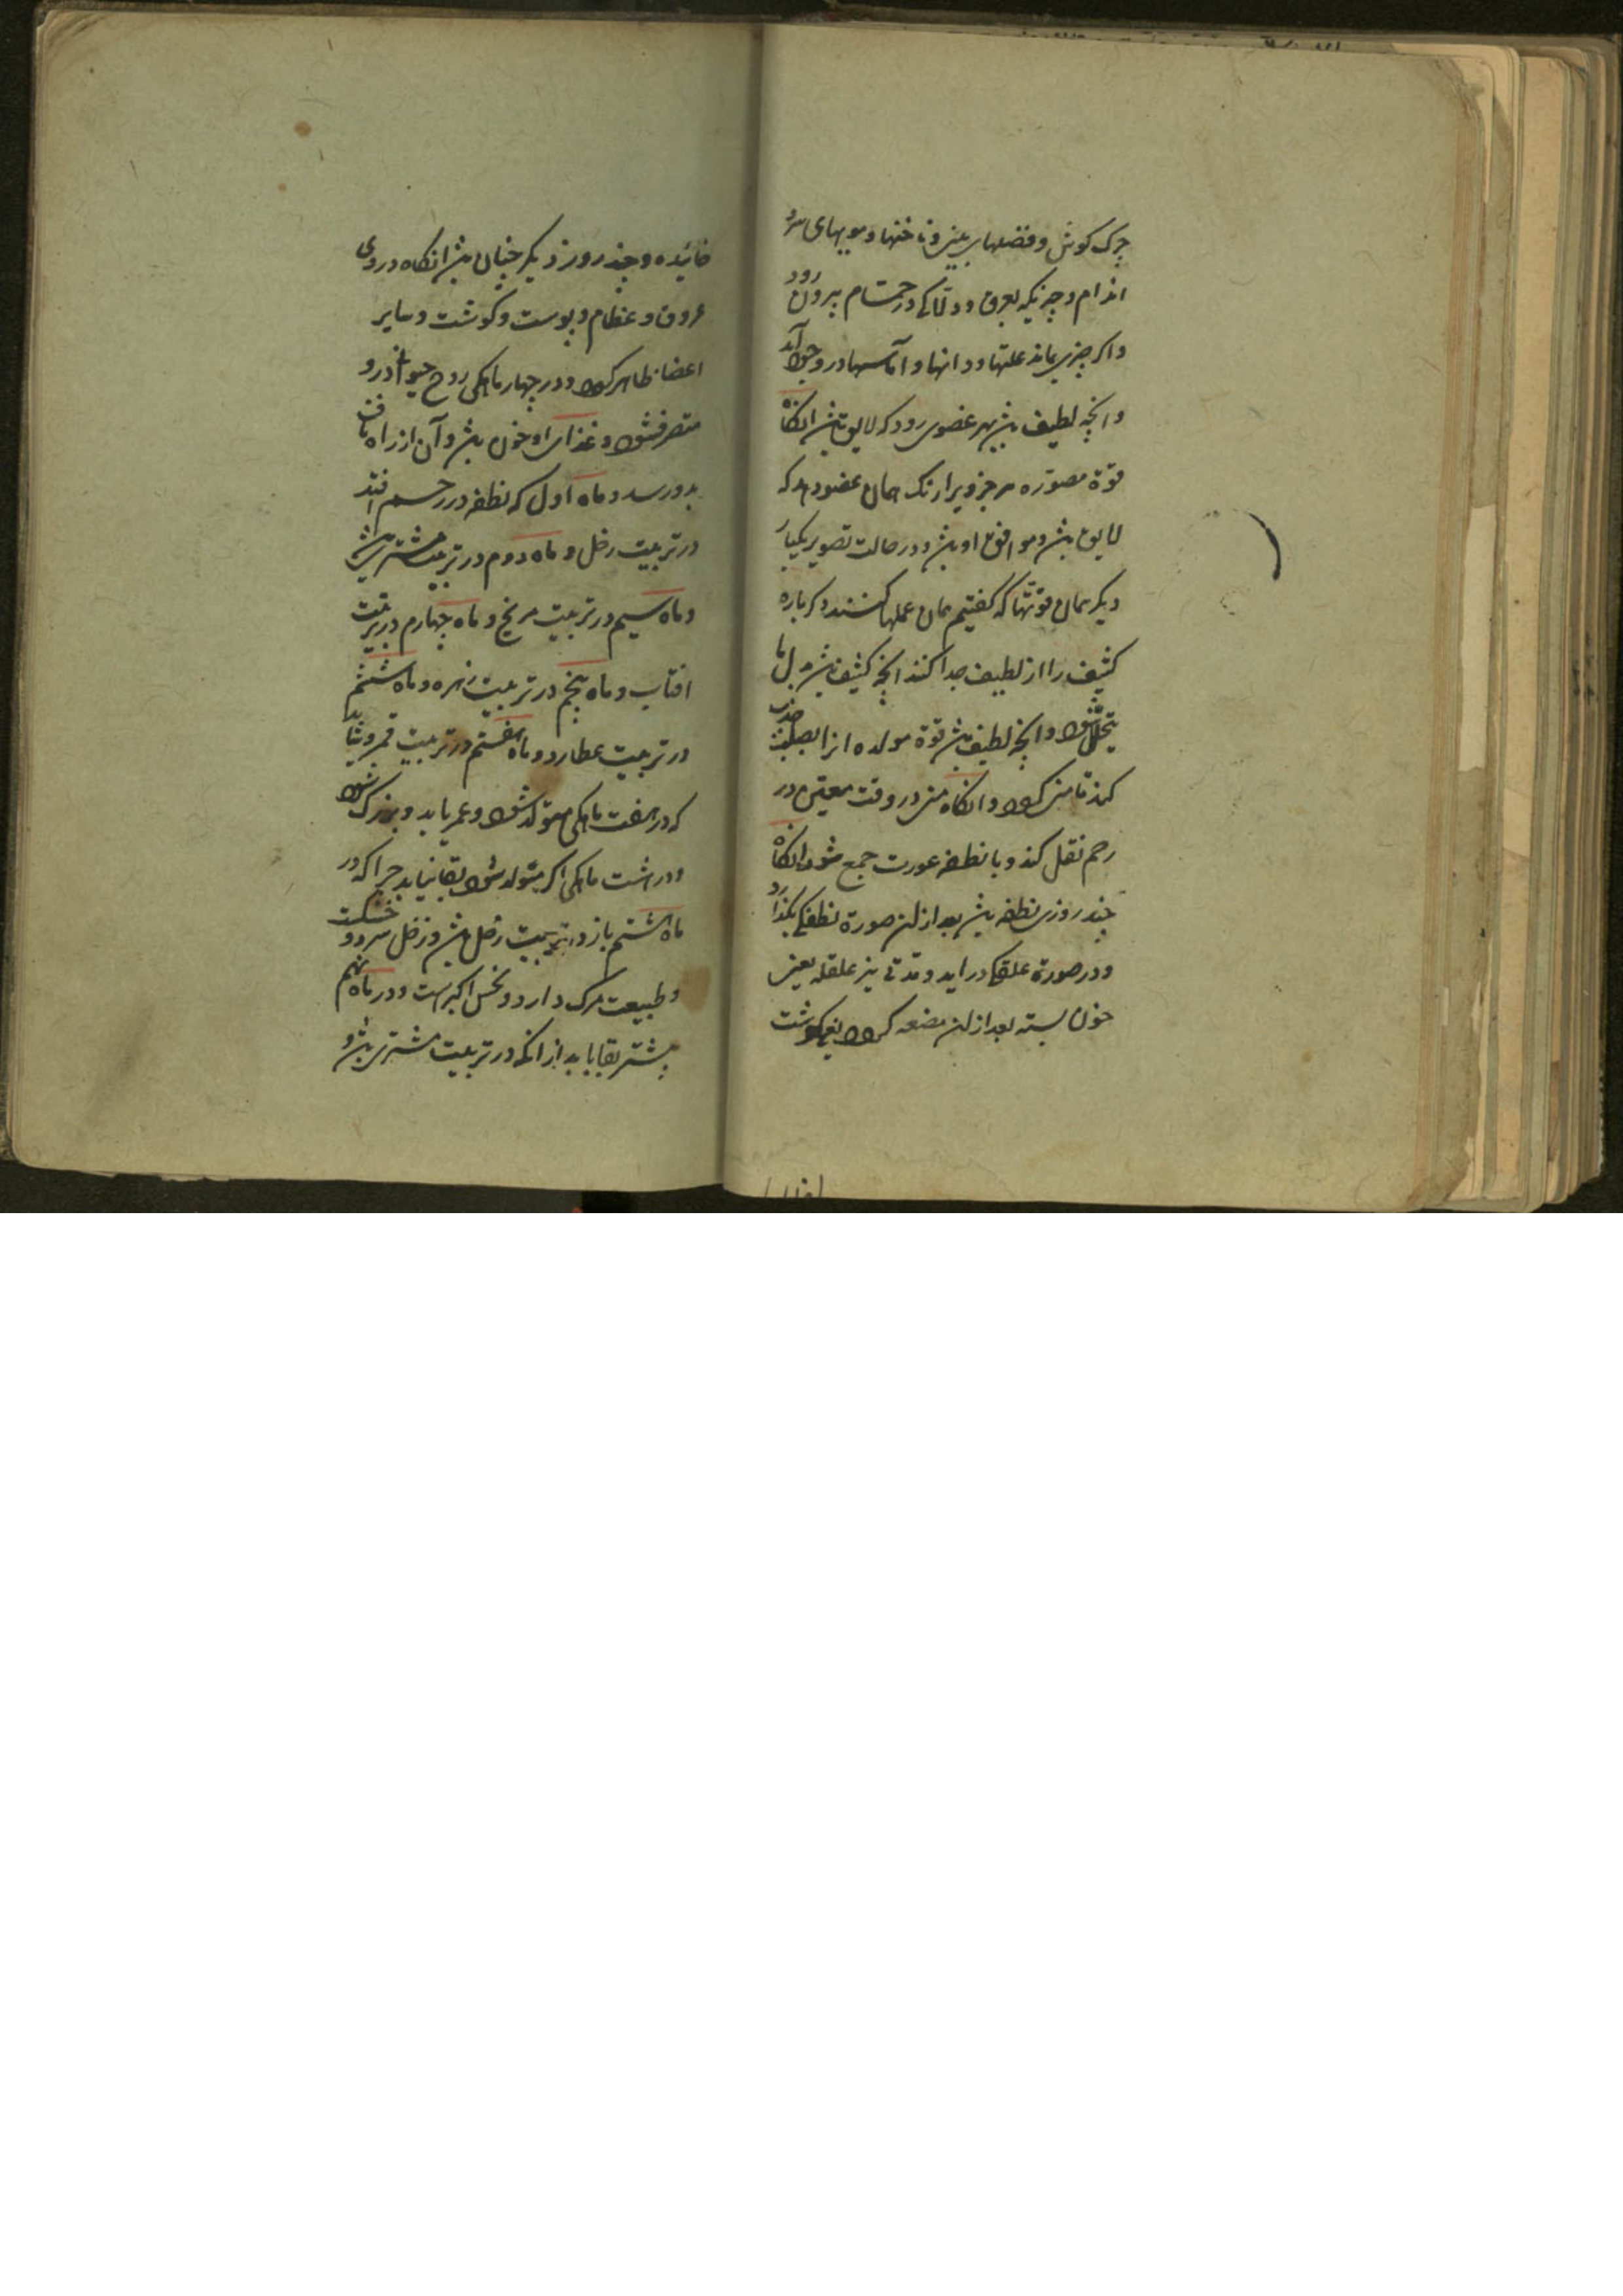 چرک کوش و فضلهای بینی و ناخنها و مویهای سر و
اندام و چیزیکه بعرق و دلاکی در حمام بیرون رود
و اکر چیزی بماند علتها و دانها و آماسها در وجود آید
و انچه لطیف باشد بهر عضوی رود که لایق باشد انکاه
قوة مصوره هر جزویرا رنک همان عضو دهد که
لایق باشد و موافق او باشد و در حالت تصویر یکبار
دیکر همان قوتها که کفتیم همان عملها کنند و کرباره
کثیف را از لطیف جدا کنند انچه کثیف باشد
بتحلل شود و انچه لطیف باشد قوة مولده انرا بصلب جذب
کند تا منی کردد و انکاه منی در وقت معین در
رحم نقل کند و با نطفه عورت جمع شود انکاه
چند روزی نطفه باشد بعد از ان صورة نطفکی بکذارد
و در صورة علقکی دراید و مدتی نیز علقه یعنی
خون بسته بعد از ان مضغه کردد یعنی کوشت
خائیده و چند روز دیکر چنان باشد انکاه در وی
عروق و عظام و پوست و کوشت و سایر
اعضا ظاهر کردد و در چهار ماهکی روح حیوانی درو
متصرف شود و غذای او خون باشد و آن از راه ناف
بدو رسد و ماه اول که نطفه در رحم افتد
در تربیت زحل و ماه دوم در تربیت مشتری باشد
و ماه سیم در تربیت مریخ و ماه چهارم در تربیت
افتاب و ماه پنجم در تربیت زهره و ماه ششم
در تربیت عطارد و ماه هفتم در تربیت قمر و شاید
که در هفت ماهکی متولد شود و عمر یابد و بزرک شود
و در هشت ماهکی اکر متولد شود بقا نیابد چرا که در
ماه هشتم باز در تربیت زحل باشد و زحل سرد و خشکست
و طبیعت مرک دارد و نحس اکبر است و در ماه نهم
بیشتر بقا یابد از انکه در تربیت مشتری باشد و